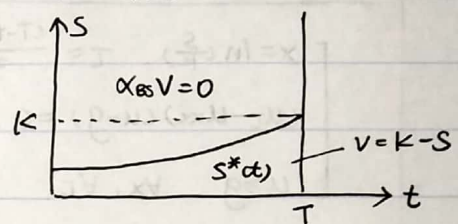 S
αBS V=0
K
S*(t)
V=K-S
T
t